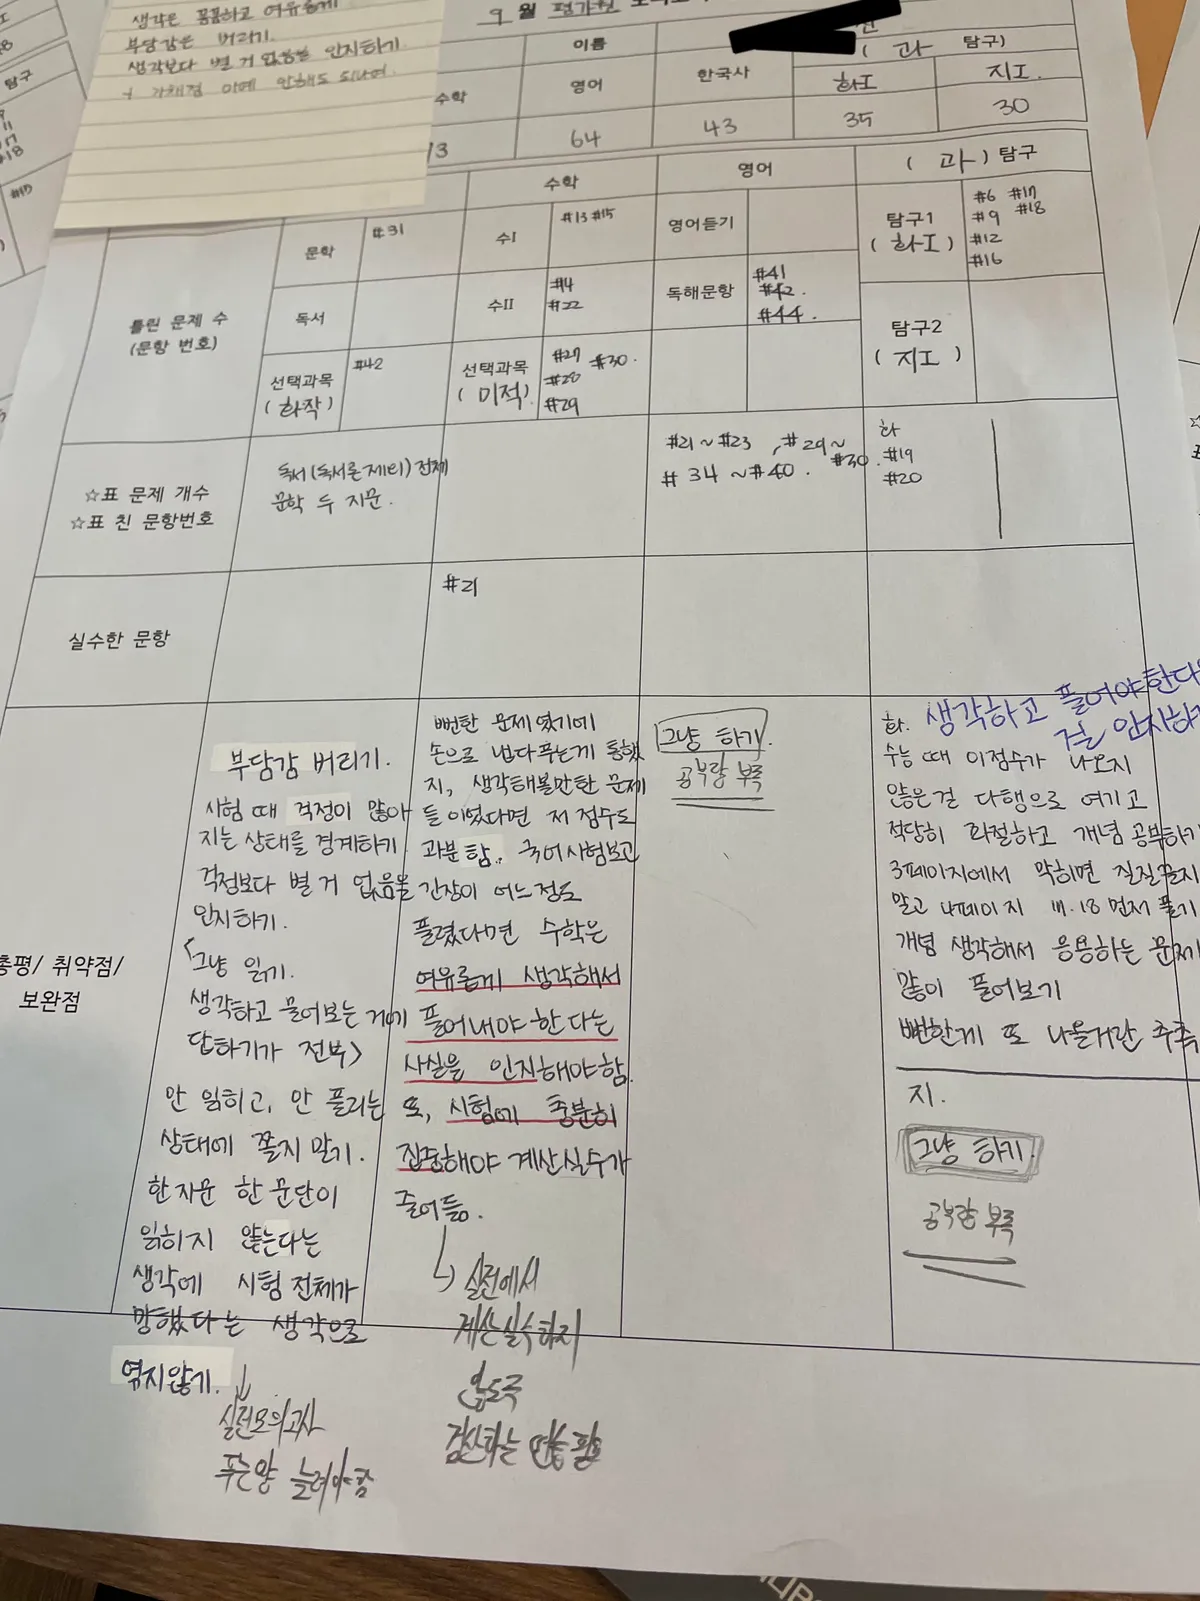 생각은 꼼꼼하고 여유롭게
부담감은 버리기.
생각보다 별 거 없음을 인지하기
+ 가채점 아예 안해도 되나여.
9월 평가원
이름
( 과 탐구)
수학
영어
한국사
화I
지I.
64
43
35
30
수학
영어
( 과 ) 탐구
틀린 문제 수
(문항 번호)
문학
#31
수I
#13 #15
영어듣기
탐구1
( 화I )
#6 #17
#9 #18
#12
#16
독서
수II
#14
#22
독해문항
#41
#42.
#44.
탐구2
( 지I )
선택과목
( 화작 )
#42
선택과목
( 미적)
#27 #30.
#28
#29
☆표 문제 개수
☆표 친 문항번호
독서(독서론제티) 전체
문학 두 지문.
#21~#23 , #29~
#30.
# 34 ~#40.
화
#19
#20
실수한 문항
#21
총평/ 취약점/
보완점
부담감 버리기.
시험 때 걱정이 많아
지는 상태를 경계하기
걱정보다 별 거 없음을
인지하기.
<그냥 읽기.
생각하고 물어보는 거에
답하기가 전부>
안 읽히고, 안 풀리는
상태에 쫄지 말기.
한 지문 한 문단이
읽히지 않는다는
생각에 시험 전체가
망했다는 생각으로
엮지않기.
실전모의고사
푸는양 늘려야함
뻔한 문제였기에
손으로 냅다푸는게 통했
지, 생각해볼만한 문제
들이었다면 저 점수도
과분함. 국어시험보고
긴장이 어느정도
풀렸다면 수학은
여유롭게 생각해서
풀어내야 한다는
사실을 인지해야함.
또, 시험에 충분히
집중해야 계산실수가
줄어듦.
→ 실전에서
계산실수하지
않도록
검산하는 연습 필요
그냥 하기.
공부량 부족
화. 생각하고 풀어야한다는
걸 인지하기
수능 때 이점수가 나오지
않은걸 다행으로 여기고
적당히 좌절하고 개념 공부하기
3페이지에서 막히면 질질끌지
말고 4페이지 17.18 먼저 풀기
개념 생각해서 응용하는 문제
많이 풀어보기
뻔한게 또 나올거란 추측
지.
그냥 하기.
공부량 부족